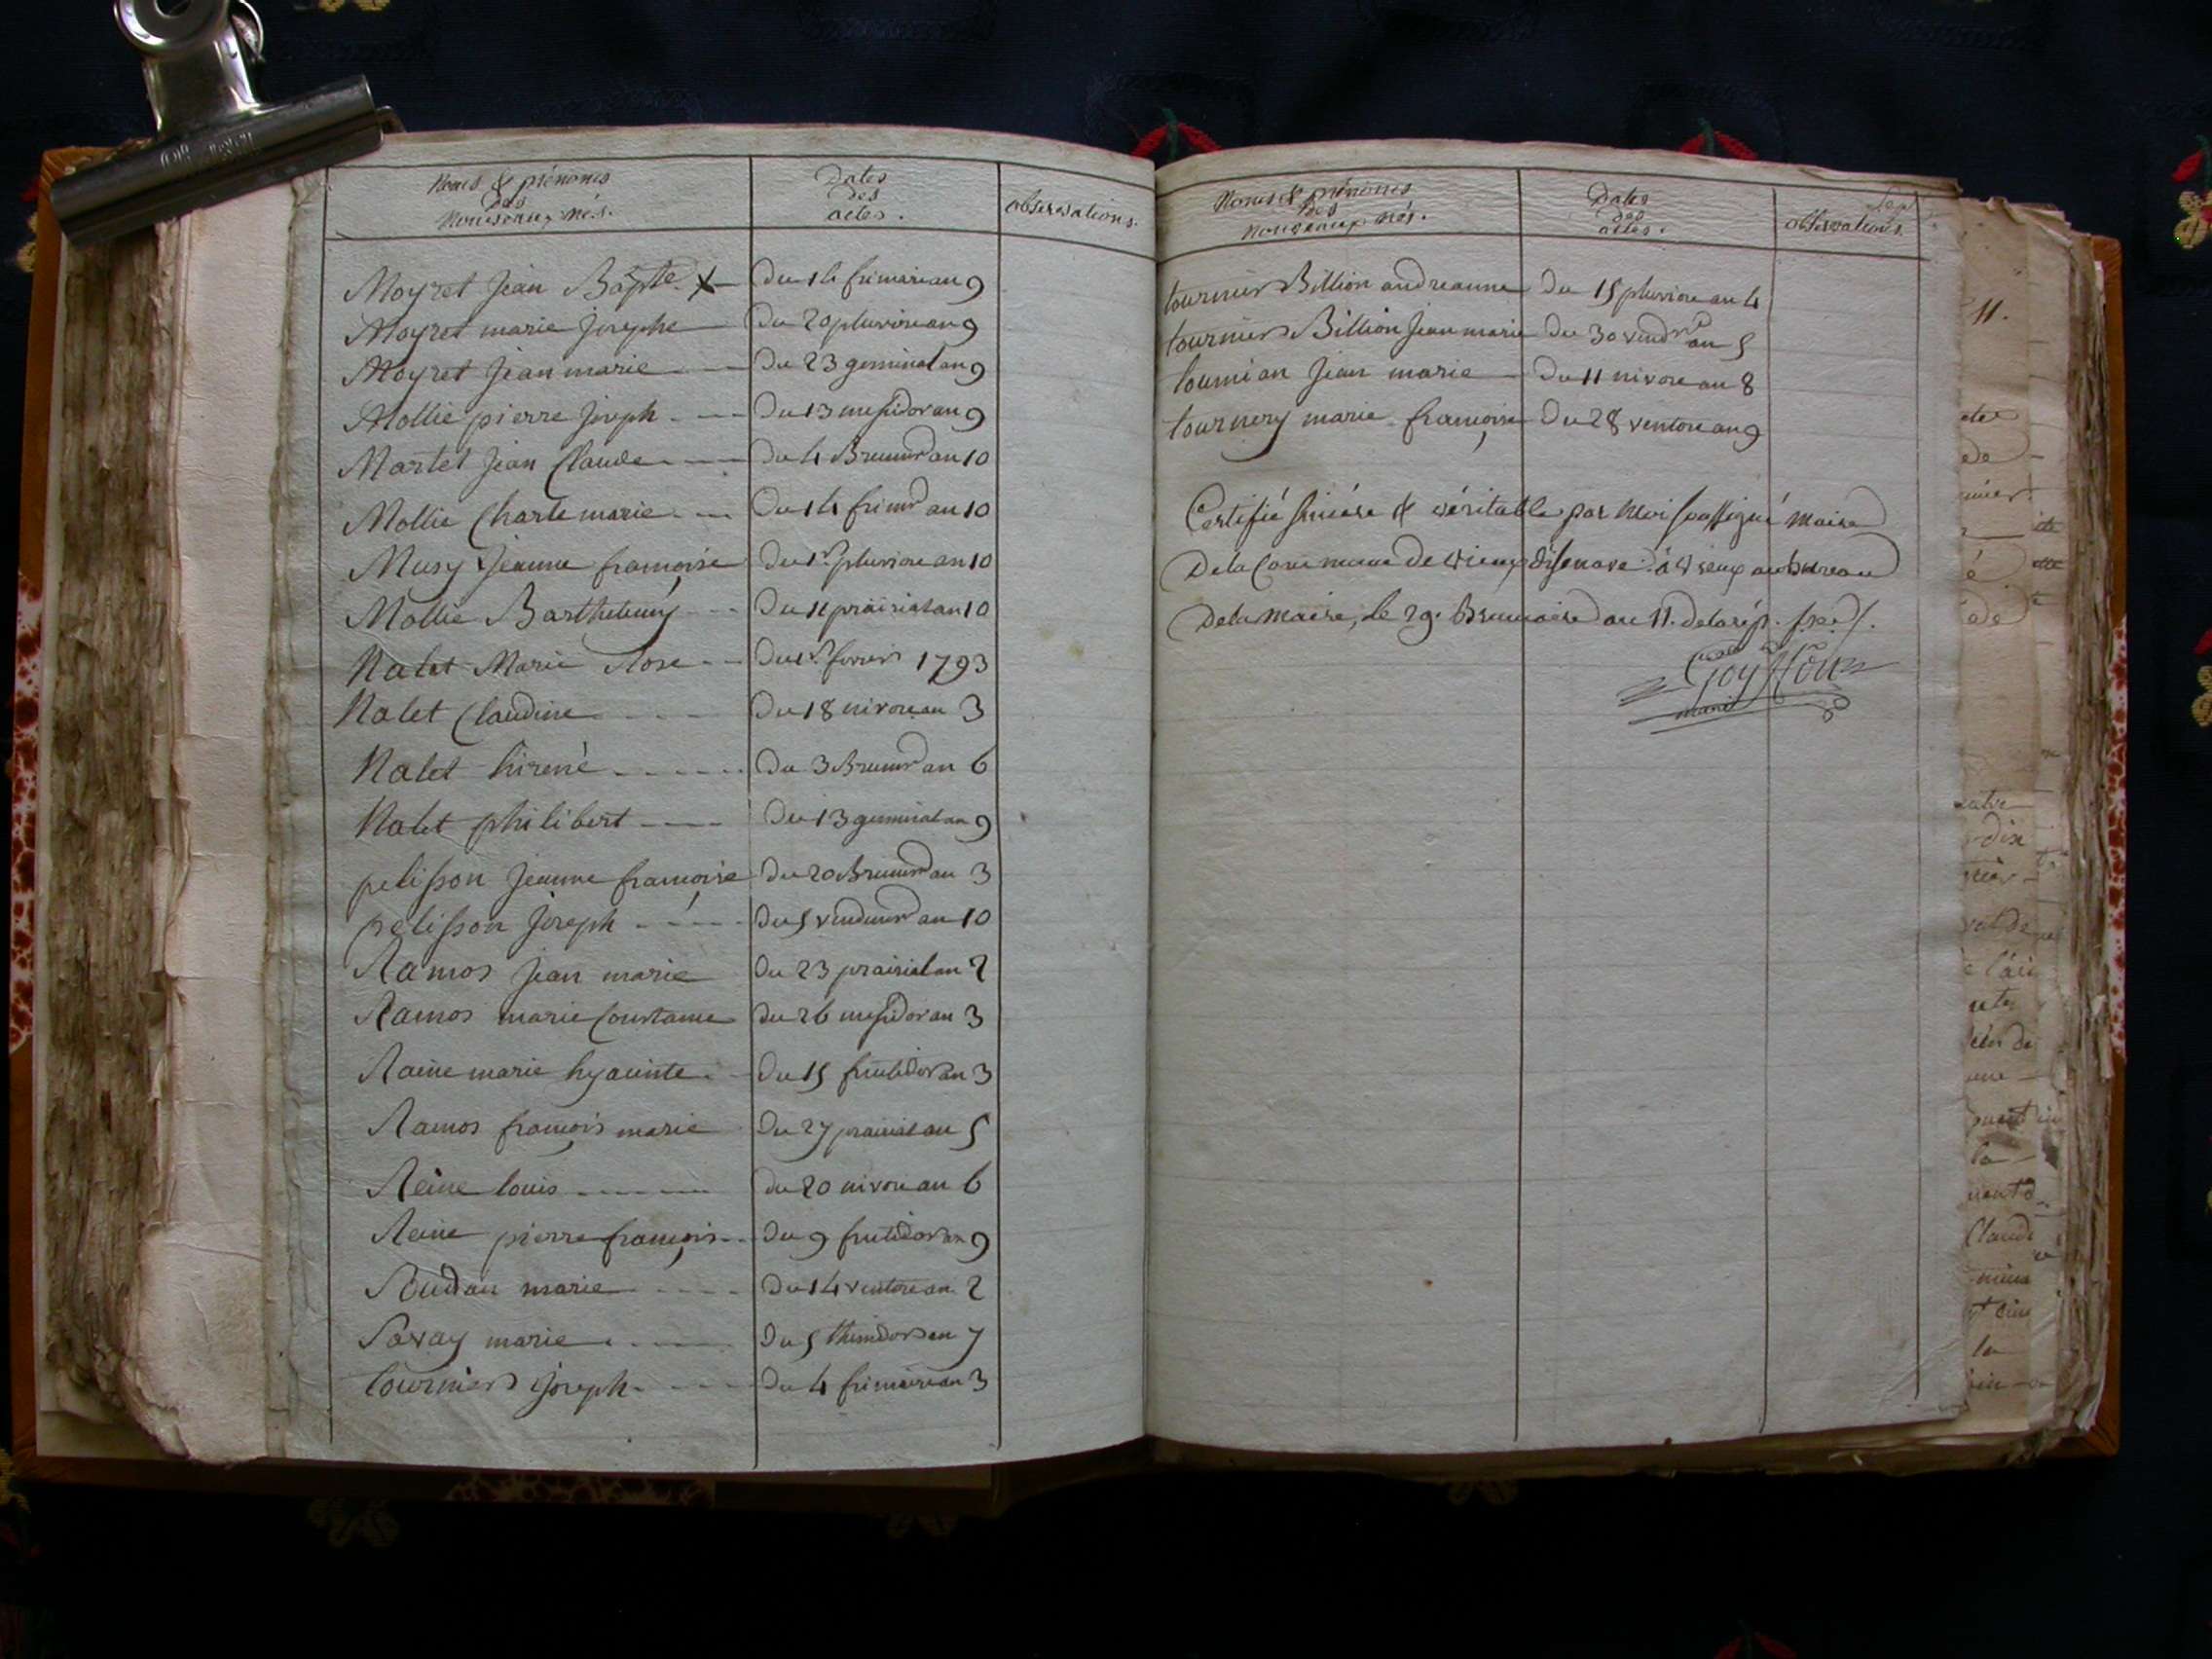 Noms & prénoms
des
Nouveaux nés.
Dates
des
actes.
observations.
Moyret Jean Bapte X Du 14 frimaire an 9
Moyret marie josephe Du 20 pluviose an 9
Moyret Jean marie Du 23 germinal an 9
Mollie pierre joseph Du 13 messidor an 9
Martel Jean Claude Du 4 Brumr an 10
Mollie Charle marie Du 14 frimr an 10
Musy Jeanne françoise Du 1er pluviose an 10
Mollie Barthelemy Du 11 prairial an 10
Nalet Marie Rose Du 1er fevrier 1793
Nalet Claudine Du 18 nivose an 3
Nalet hirené Du 3 Brumr an 6
Nalet philibert Du 13 germinal an 9
pelisson Jeanne françoise Du 20 Brumr an 3
pelisson Joseph Du 5 vendemr an 10
Ramos Jean marie Du 23 prairial an 2
Ramos marie Constance Du 26 messidor an 3
Raine marie hyacinte Du 15 fructidor an 3
Ramos françois marie Du 27 prairial an 5
Reine louis Du 20 nivose an 6
Reine pierre françois Du 9 frutidor an 9
Ruddan marie Du 14 ventose an 2
Savay marie Du 5 thimidor an 7
tournier joseph Du 4 frimaire an 3
Noms & prénoms
des
Nouveaux nés.
Dates
des
actes.
observations.
tournier Billion andreanne Du 15 pluviose an 4
tournier Billion Jean marie Du 30 vendre an 5
tournian Jean marie Du 11 nivose an 8
tournery marie françoise Du 28 ventose an 9
Certifié sincère & véritable par Moi soussigné maire
De la Commune de Vieux disenave à Vieux au bureau
De la Mairie, le 29. brumaire an 11. de la rép. fse.
Goyffon
maire
11.